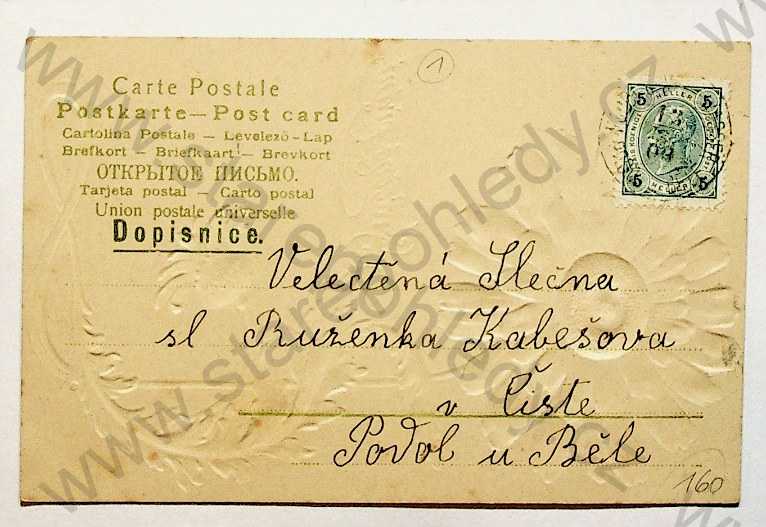 Carte Postale
Postkarte — Post card
Cartolina Postale — Levelező-Lap
Brefkort — Briefkaart — Brevkort
ОТКРЫТОЕ ПИСЬМО.
Tarjeta postal — Carto postal
Union postale universelle
Dopisnice.
1
5 HELLER 5
13
09
5 HELLER 5
Velectěná Slečna
sl Ruženka Kabešova
v Čiste
Podol u Běle
160
www.starepohledy.cz